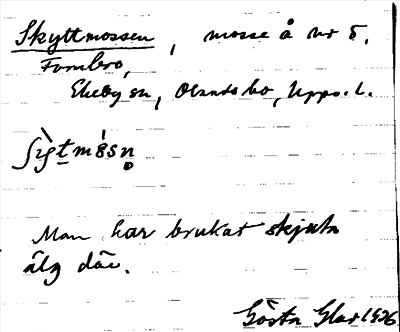 Skyttmossen, mosse å nr 5.
Fornbro,
Ekeby sn, Olands hd, Upps. l.
Man har brukat skjuta
älg där.
Gösta Glar 1926